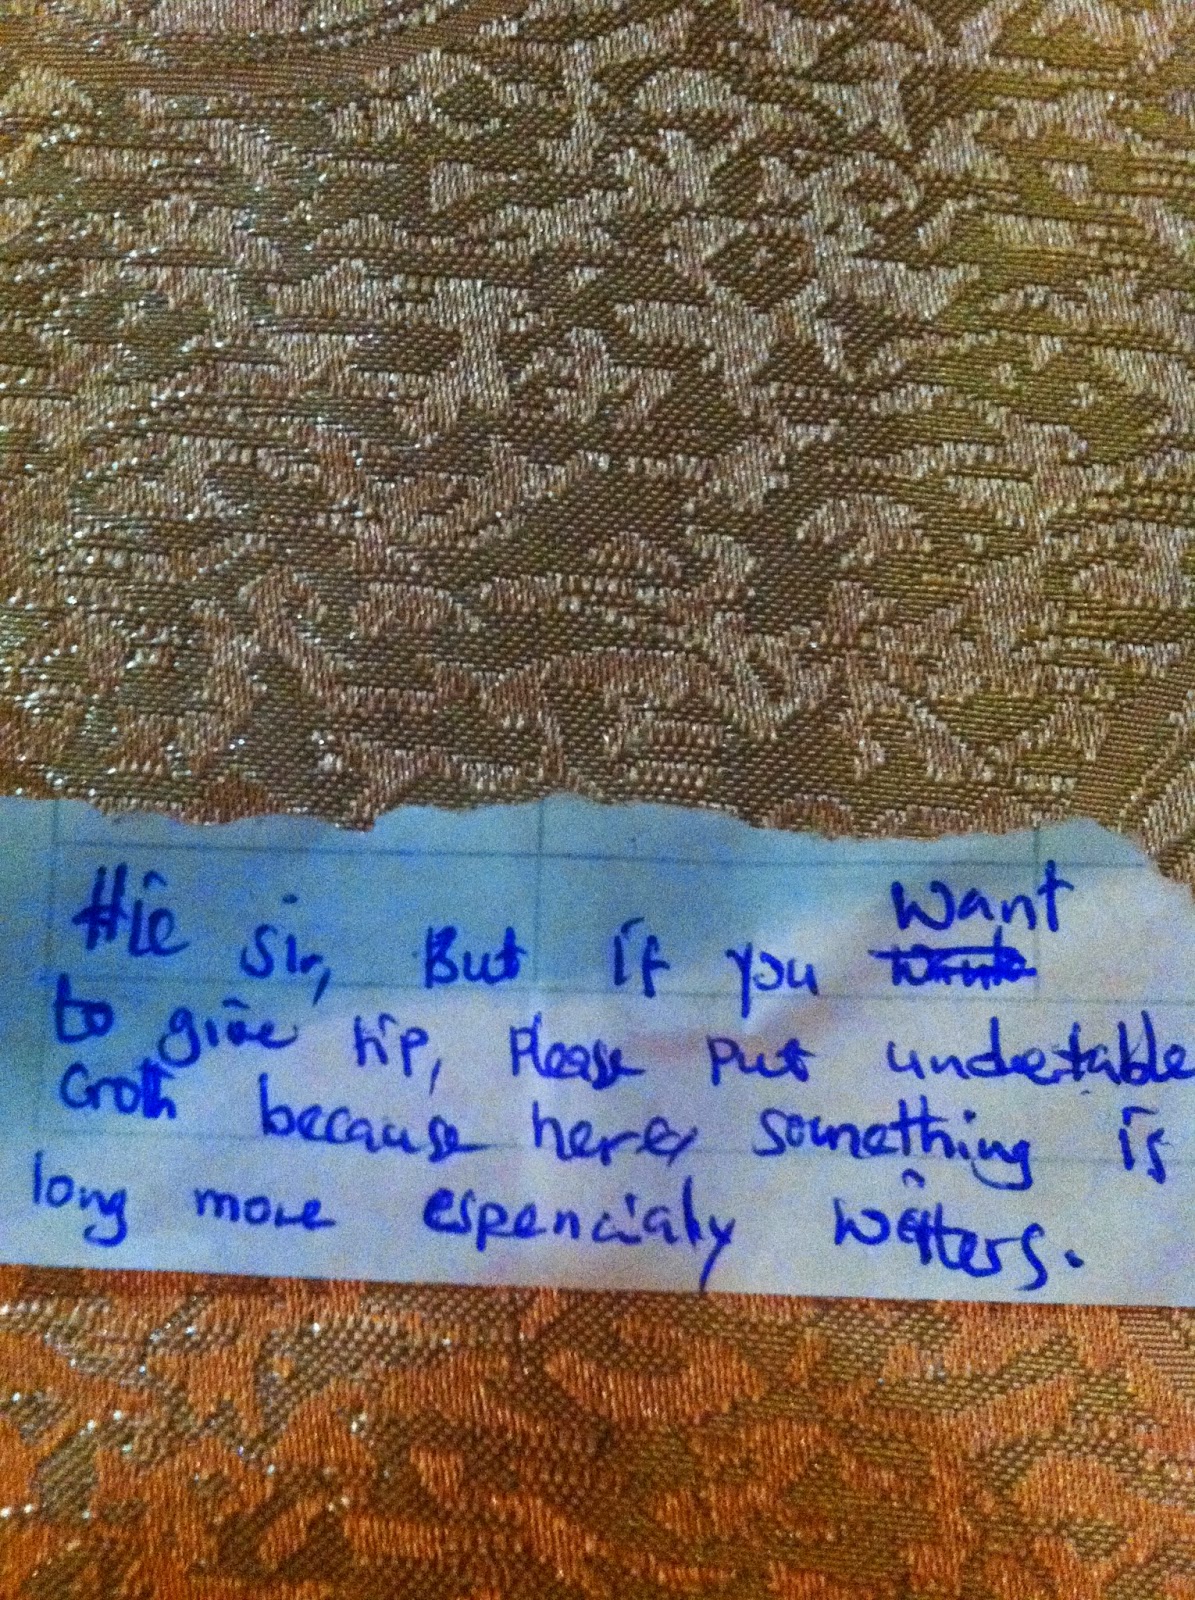 Hie Sir, But if you want
to give tip, Please put undertable
Croth because here, something is
long more espencialy waiters.